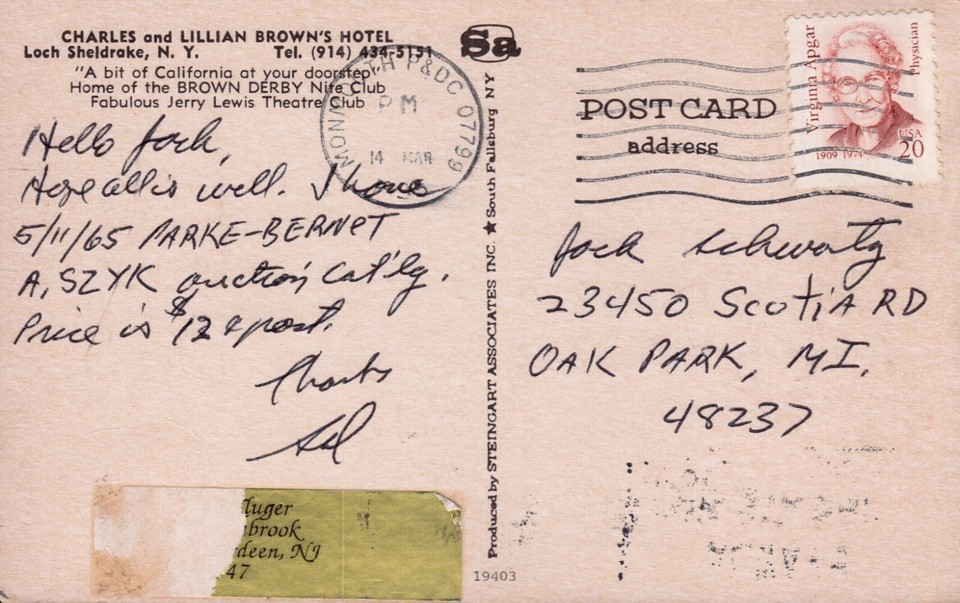 CHARLES and LILLIAN BROWN'S HOTEL
Loch Sheldrake, N. Y. Tel. (914) 434-5151
"A bit of California at your doorstep"
Home of the BROWN DERBY Nite Club
Fabulous Jerry Lewis Theatre Club
Hello Jack,
Hope all is well. I have
5/11/65 PARKE-BERNET
A. SZYK auction Cat'lg.
Price is $12 & post.
Thanks
Sid
luger
brook
deen, NJ
47
MONMOUTH P&DC 07799
PM
14 MAR
Sa
Produced by STEINGART ASSOCIATES INC. ★ South Fallsburg NY
19403
POST CARD
address
Virginia Apgar
Physician
USA
20
1909 1974
Jack Schwartz
23450 Scotia RD
OAK PARK, MI.
48237